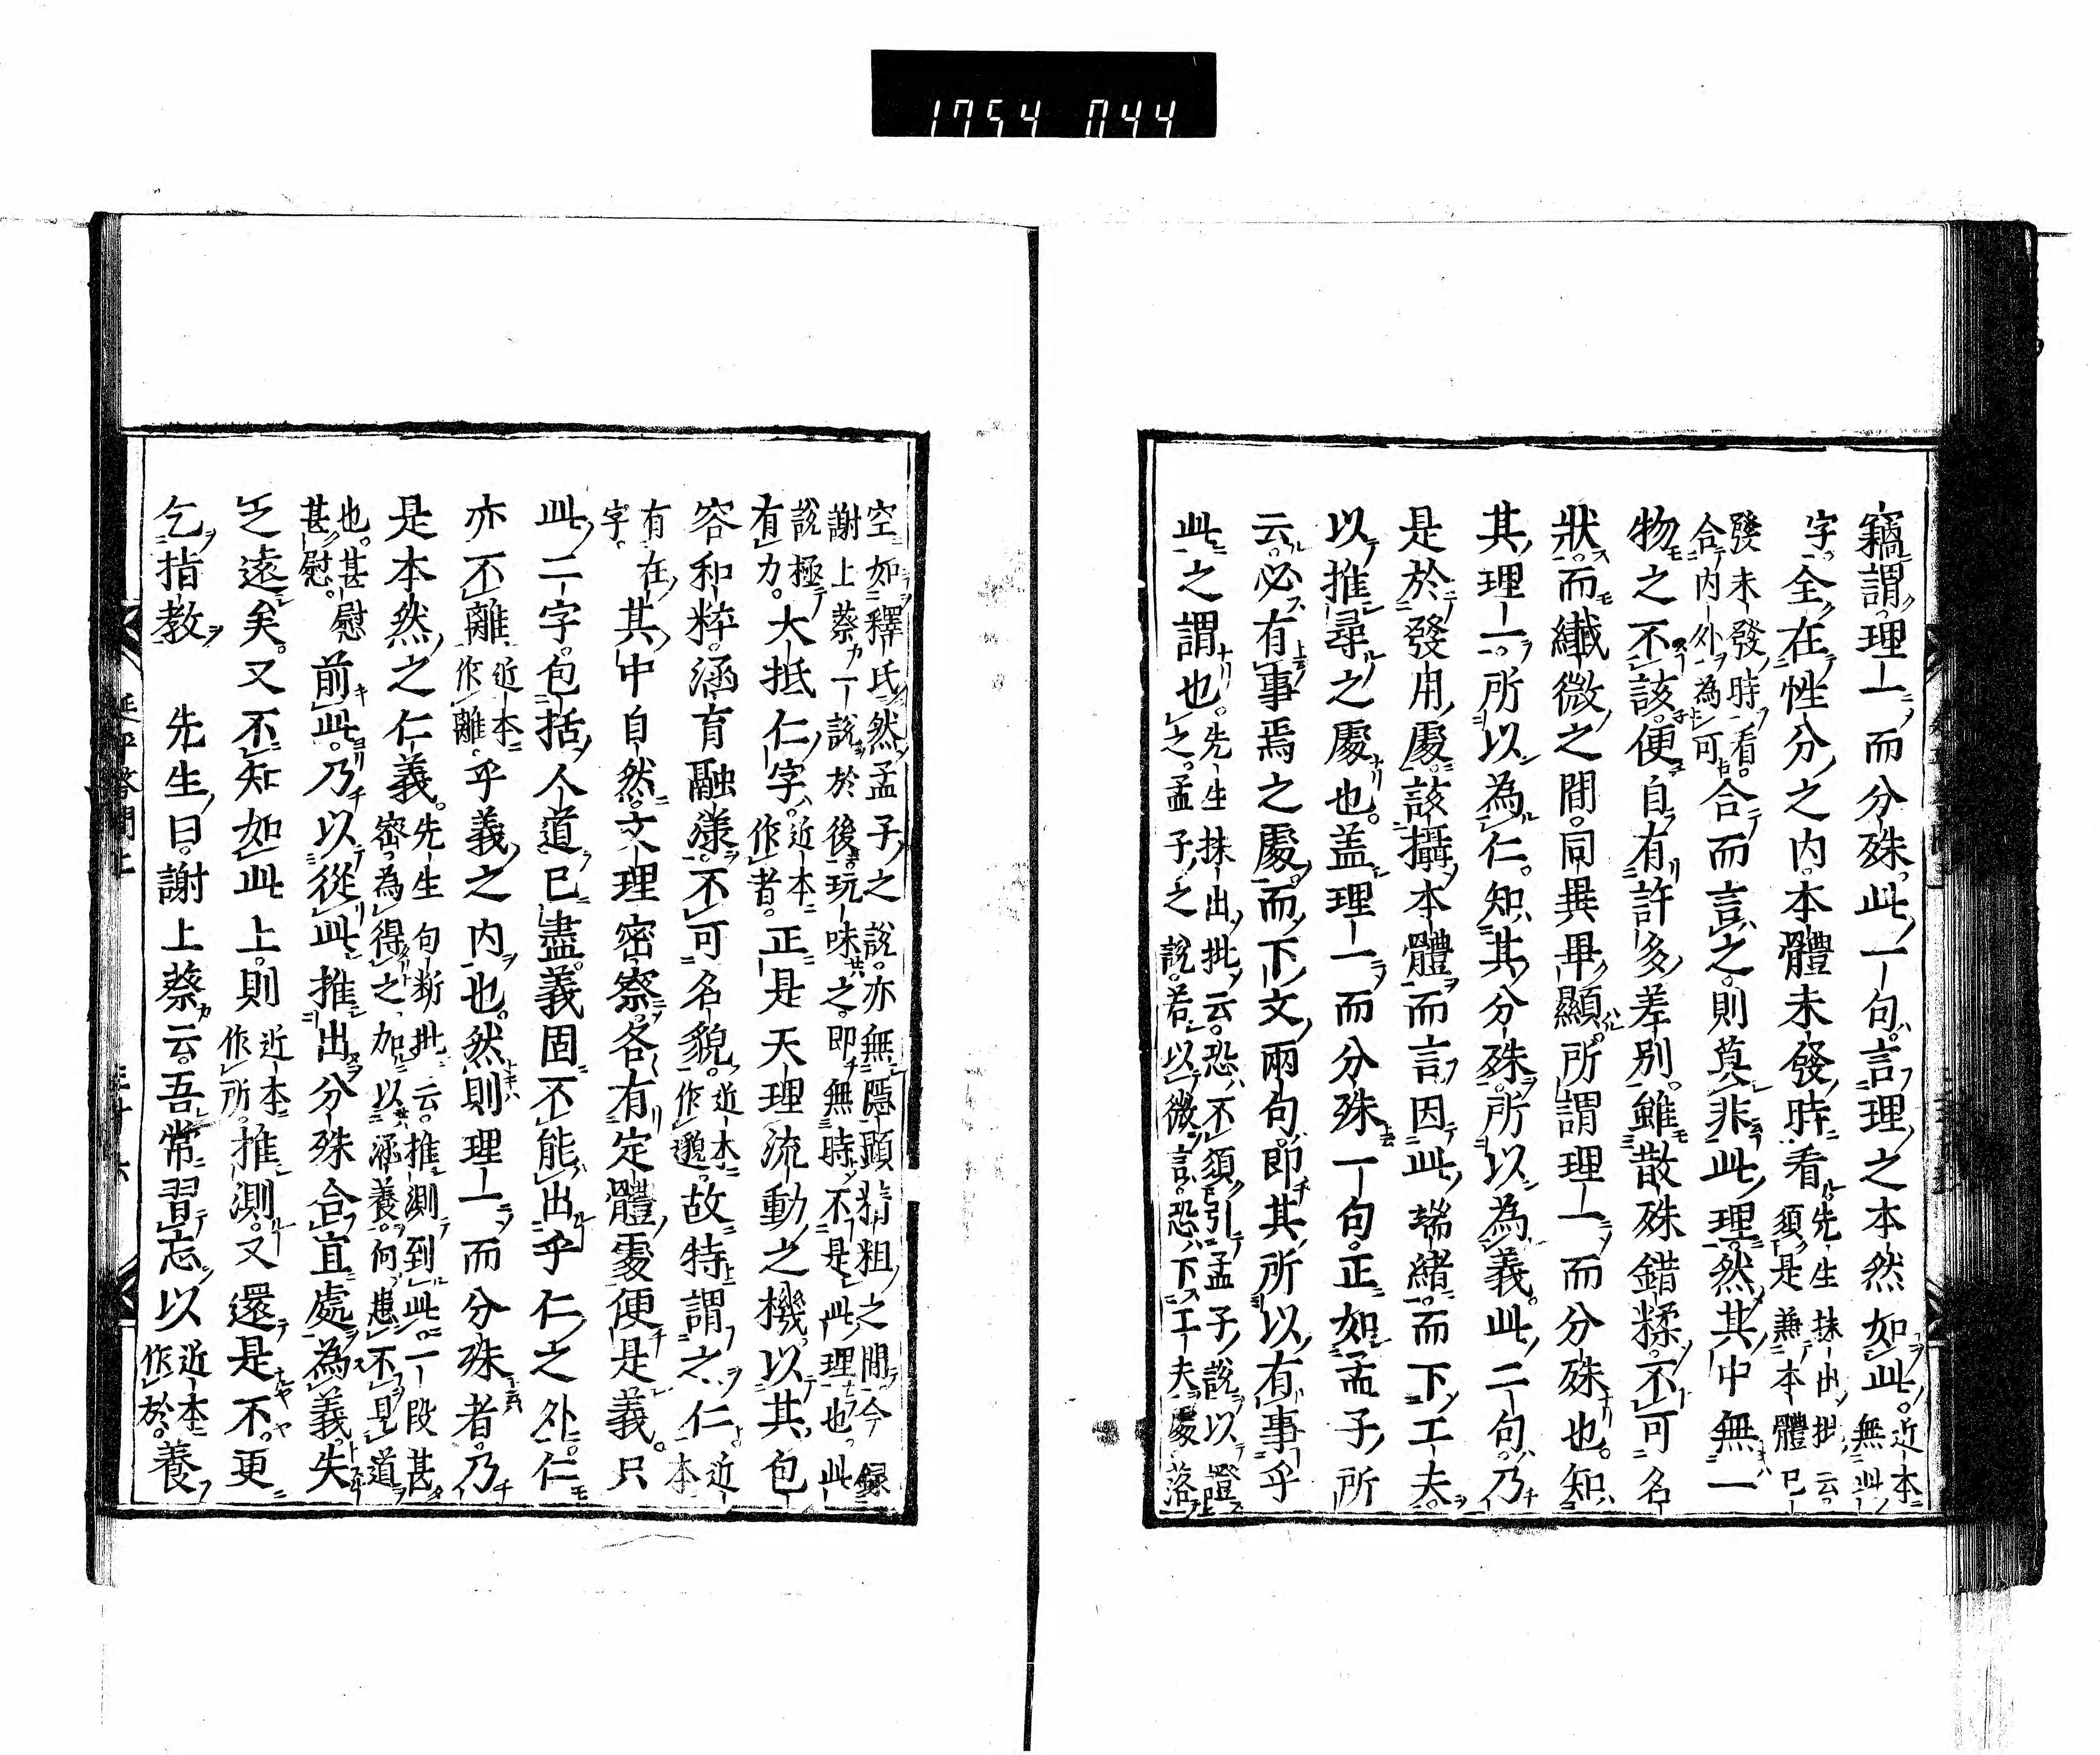 1754 044
竊謂理一而分殊此一句言理之本然如此近本無此
字全在性分之内本體未發時看先生抹出批云須是兼本體已
發未發時看合内外為可合而言之則莫非此理然其中無一
物之不該便自有許多差別雖散殊錯糅不可名
狀而纎微之間同異畢顯所謂理一而分殊也知
其理一所以為仁知其分殊所以為義此二句乃
是於發用處該攝本體而言因此端緒而下工夫
以推尋之處也盖理一而分殊一句正如孟子所
云必有事焉之處而下文兩句即其所以有事乎
此之謂也先生抹出批云恐不須引孟子說以證之孟子之說若以微言恐下工夫處落
空如釋氏然孟子之說亦無隱顯精粗之間今録謝上蔡一說於後玩味之即無時不是此理也此
說極有力大抵仁字近本作者正是天理流動之機以其包
容和粹涵育融漾不可名貌近本作邈故特謂之仁近本
有在字其中自然文理密察各有定體處便是義只
此二字包括人道已盡義固不能出乎仁之外仁
亦不離近本作離乎義之内也然則理一而分殊者乃
是本然之仁義先生句斷批云推測到此一段甚密為得之加以涵養何患不見道
也甚慰甚慰前此乃以從此推出分殊合宜處為義失
之遠矣又不知如此上則近本作所推測又還是不更
乞指教　先生曰謝上蔡云吾常習忘以近本作於養
延平答問上